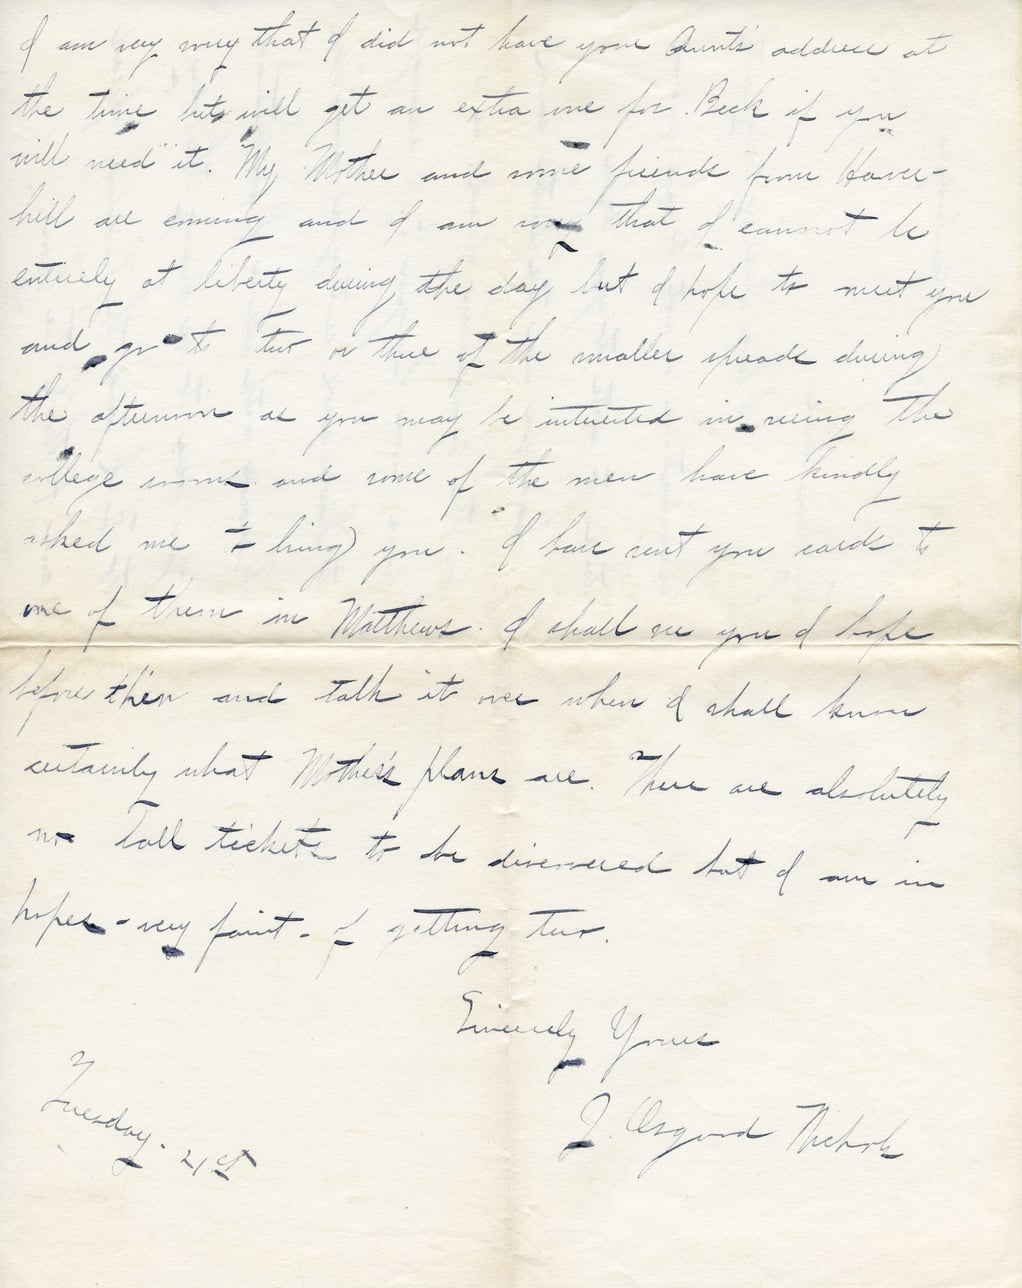 I am very sorry that I did not have your Aunt's address at
the time but will get an extra one for Beck if you
will need it. My Mother and some friends from Haver-
hill are coming and I am sorry that I cannot be
entirely at liberty during the day but I hope to meet you
and go to two or three of the smaller spreads during
the afternoon as you may be interested in seeing the
college rooms and some of the men have kindly
asked me to bring you. I have sent you cards to
one of them in Matthews. I shall see you I hope
before then and talk it over when I shall know
certainly what Mother's plans are. There are absolutely
no Tall tickets to be discovered but I am in
hopes - very faint - of getting two.
Sincerely Yours
J. Osgood Nichols
Tuesday. 21st